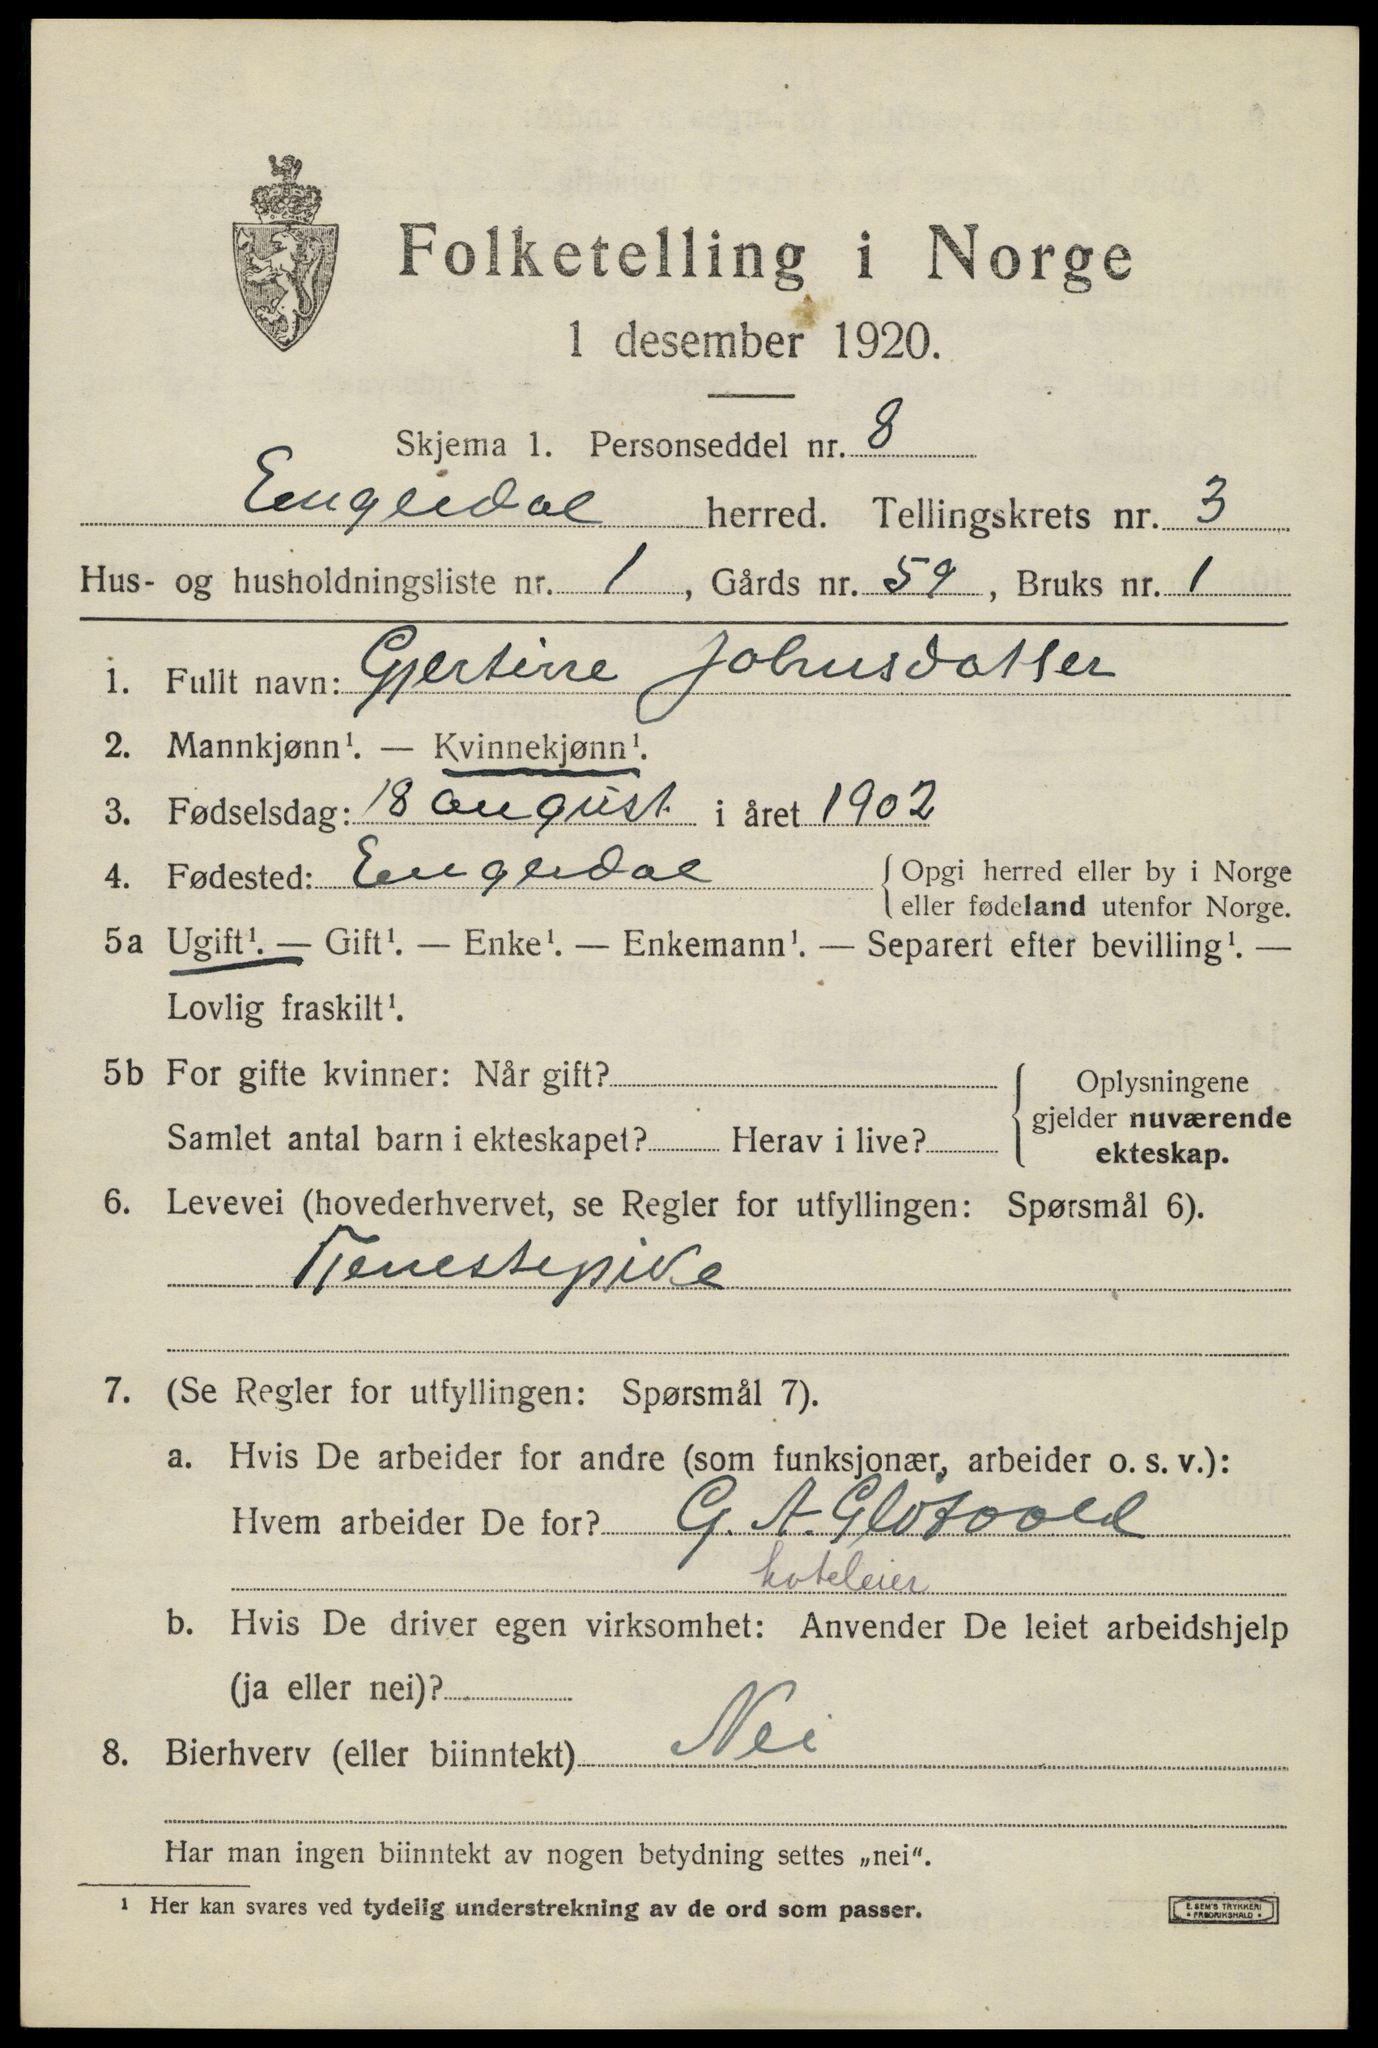 Folketelling i Norge
1 desember 1920.
Skjema 1. Personseddel nr. 8
Engerdal herred. Tellingskrets nr. 3
Hus- og husholdningsliste nr. 1, Gårds nr. 59, Bruks nr. 1
1. Fullt navn: Gjertine Johnsdatter
2. Mannkjønn¹. — Kvinnekjønn¹.
3. Fødselsdag: 18 august i året 1902
4. Fødested: Engerdal { Opgi herred eller by i Norge
eller fødeland utenfor Norge.
5a Ugift¹. — Gift¹. — Enke¹. — Enkemann¹. — Separert efter bevilling¹. —
Lovlig fraskilt¹.
5b For gifte kvinner: Når gift? { Oplysningene
gjelder nuværende
Samlet antal barn i ekteskapet? Herav i live? ekteskap.
6. Levevei (hovederhvervet, se Regler for utfyllingen: Spørsmål 6).
Tjenestepike
7. (Se Regler for utfyllingen: Spørsmål 7).
a. Hvis De arbeider for andre (som funksjonær, arbeider o. s. v.):
Hvem arbeider De for? G. A. Gløtvold
hoteleier
b. Hvis De driver egen virksomhet: Anvender De leiet arbeidshjelp
(ja eller nei)?
8. Bierhverv (eller biinntekt) Nei
Har man ingen biinntekt av nogen betydning settes „nei“.
¹ Her kan svares ved tydelig understrekning av de ord som passer.
E. SEM'S TRYKKERI
• FREDRIKSHALD •